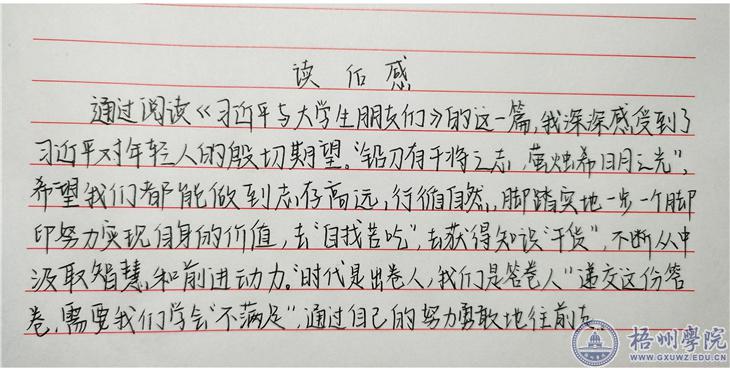 读后感
通过阅读《习近平与大学生朋友们》的这一篇,我深深感受到了
习近平对年轻人的殷切期望。"铅刀有干将之志,萤烛希日月之光",
希望我们都能做到志存高远,行循自然,脚踏实地一步一个脚
印努力实现自身的价值,去"自找苦吃",去获得知识"干货",不断从中
汲取智慧,和前进动力。"时代是出卷人,我们是答卷人"递交这份答
卷,需要我们学会"不满足",通过自己的努力勇敢地往前走。
梧州學院
WWW.GXUWZ.EDU.CN